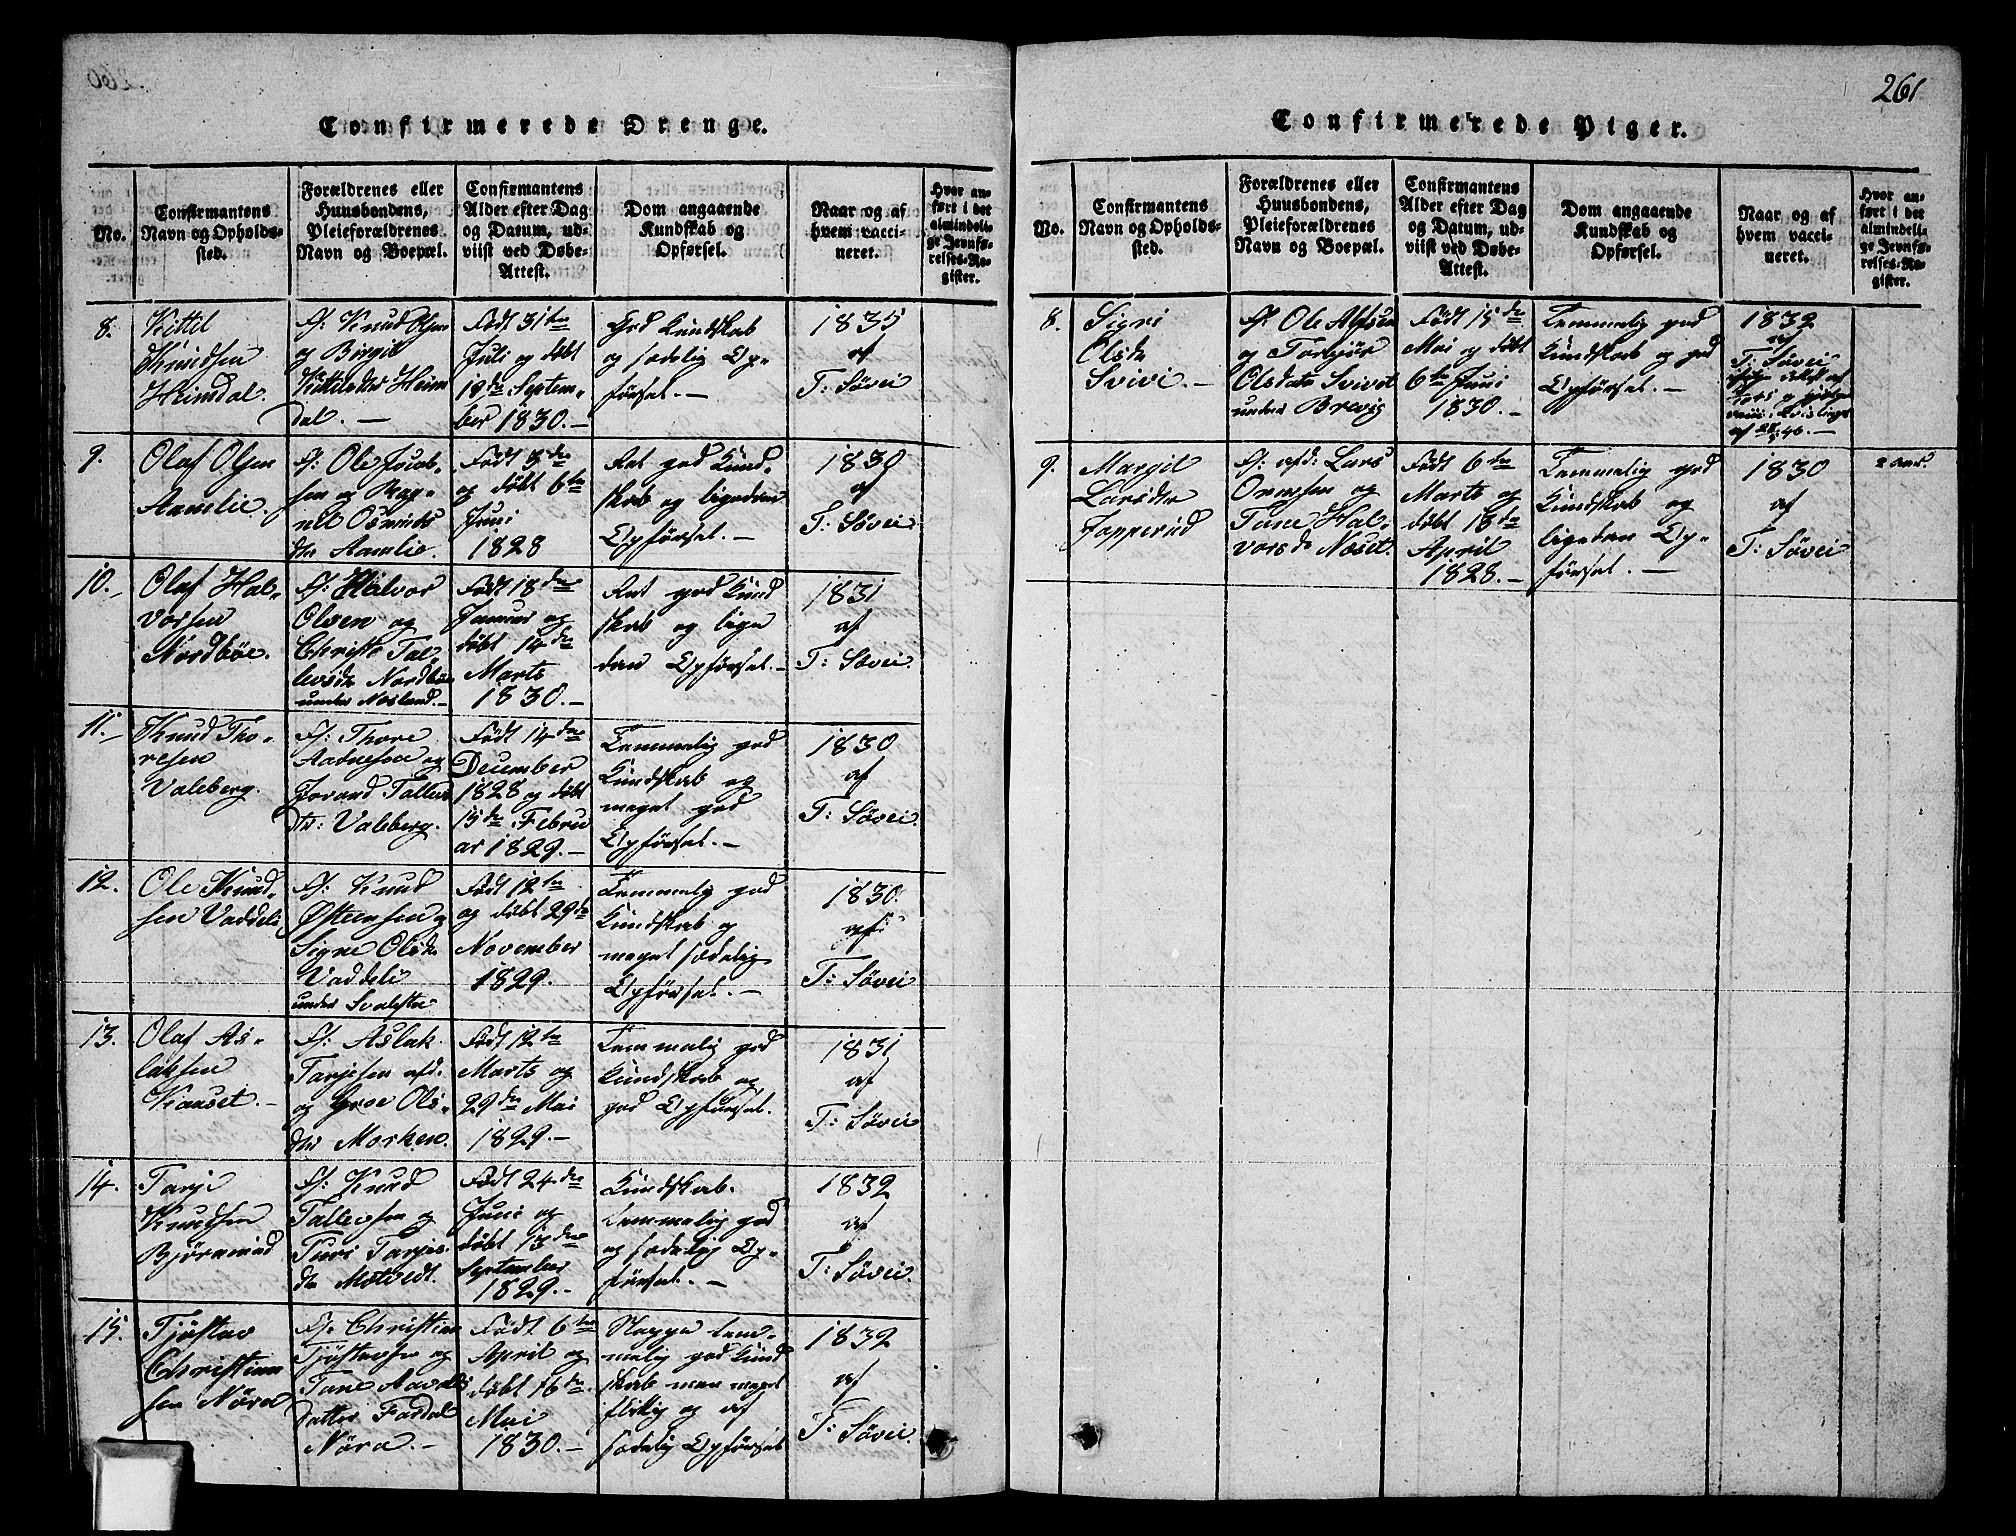 261
Confirmerede Drenge.
No.
Confirmantens
Navn og Opholds-
sted.
Forældrenes eller
Huusbondens,
Pleieforældrenes
Navn og Boepæl.
Confirmantens
Alder efter Dag
og Datum, ud-
viist ved Døbe-
Attest.
Dom angaaende
Kundskab og
Opførsel.
Naar og af
hvem vacci-
neret.
Hvor an-
ført i det
almindeli-
ge Jevnfø-
relses-Re-
gister.
8.
Kittil
Knudsen
Heimdal.
F: Knud Olsen
og Birgit
Kittilsdtr Heim
dal. —
Født 31te
Juli og døbt
19de Septem-
ber 1830. —
God Kundskab
og sædelig Op-
førsel. —
1835
af
T: Søvei
9.
Olaf Olsen
Aamlie.
F: Ole Jacob-
sen og Rag-
nil Osmunds
dtr Aamlie.
Født
og døbt 6te
Juni
1828
Ret god Kund-
skab og ligeden
Opførsel. —
1830
af
T: Søvei
10. —
Olaf Hal-
vorsen
Nordbøe.
F: Halvor
Olsen og
Christi Tal-
levsdr Nordbøe
under Nesland. —
Født 18de
Januar og
døbt 14de
Marts
1830. —
Ret god Kund
skab og lige
den Opførsel. —
1831
af
T: Søvei.
11. —
Knud Tho-
resen
Valeberg.
F: Thore
Aadnesen og
Jorand Tallevs
dtr: Valeberg.
Født 14de
December
1828 og døbt
15de Febru
ar 1829. —
Temmelig god
Kundskab og
meget god
Opførsel. —
1830
af
T: Søvei.
12.
Ole Knud-
sen Vaddeli
F: Knud
Østensen og
Signe Olsdr
Vaddeli
under
Født 12te
og døbt 29de
November
1829. —
Temmelig god
Kundskab og
meget sædelig
Opførsel. —
1830.
af
T: Søvei
13.
Olaf As-
laksen
F: Aslak
Tarjesen afd.
og Groe Ols-
dtr Morken.
Født 12te
Marts og
29de Mai
1829. —
Temmelig god
Kundskab og
god Opførsel.
1831
af
T: Søvei
14.
Tarje
Knudsen
F: Knud
Tallevsen og
Turi Tarjes
dr Motvedt.
Født 24de
Juni og
døbt 13de
September
1829. —
Kundskab.
Temmelig god
og sædelig Op-
førsel. —
1832
af
T: Søvei.
15.
Tjøstav
Christian
sen Nøra
F: Christian
Tjøstavsen og
Tane Aavolds
datter Fosdal
Nøra. —
Født 6te
April og
døbt 16de
Mai
1830. —
Neppe tem-
melig god Kund
skab men meget
flittig og af
sædelig Opførsel
1832
af
T: Søvei.
Confirmerede Piger.
No.
Confirmantens
Navn og Opholds-
sted.
Forældrenes eller
Huusbondens,
Pleieforældrenes
Navn og Boepæl.
Confirmantens
Alder efter Dag
og Datum, ud-
viist ved Døbe-
Attest.
Dom angaaende
Kundskab og
Opførsel.
Naar og af
hvem vacci-
neret.
Hvor an-
ført i det
almindeli-
ge Jevnfø-
relses-Re-
gister.
8.
Sigri
Olsdr
Svivi. —
F: Ole Alfsen
og Torbjør
Olsdatr Svivet
under Brevig
Født 15de
Mai og døbt
6te Juni
1830. —
Temmelig god
Kundskab og god
Opførsel. —
1832
af
T: Søvei
9.
Margit
Larsdtr
F: afd: Lars
Ormsen og
Tane Hal-
vorsdr Noset.
Født 6te
Marts og
døbt 18de
April
1828. —
Temmelig god
Kundskab og
ligeden Op-
førsel. —
1830
af
T: Søvei